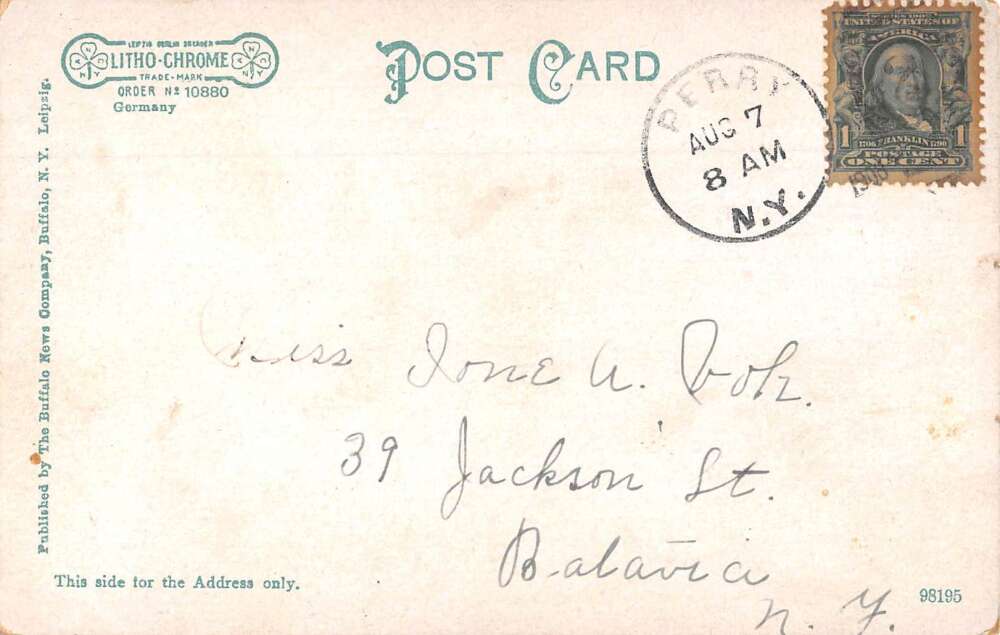 LEIPZIG BERLIN DRESDEN
LITHO-CHROME
TRADE-MARK
ORDER No 10880
Germany
POST CARD
PERRY
AUG 7
8 AM
N.Y.
UNITED STATES OF
AMERICA
1 1706 FRANKLIN 1790 1
POSTAGE
ONE CENT
Published by The Buffalo News Company, Buffalo, N. Y. Leipzig.
Miss Ione A. Volz.
39 Jackson St.
Batavia
N. Y.
This side for the Address only.
98195